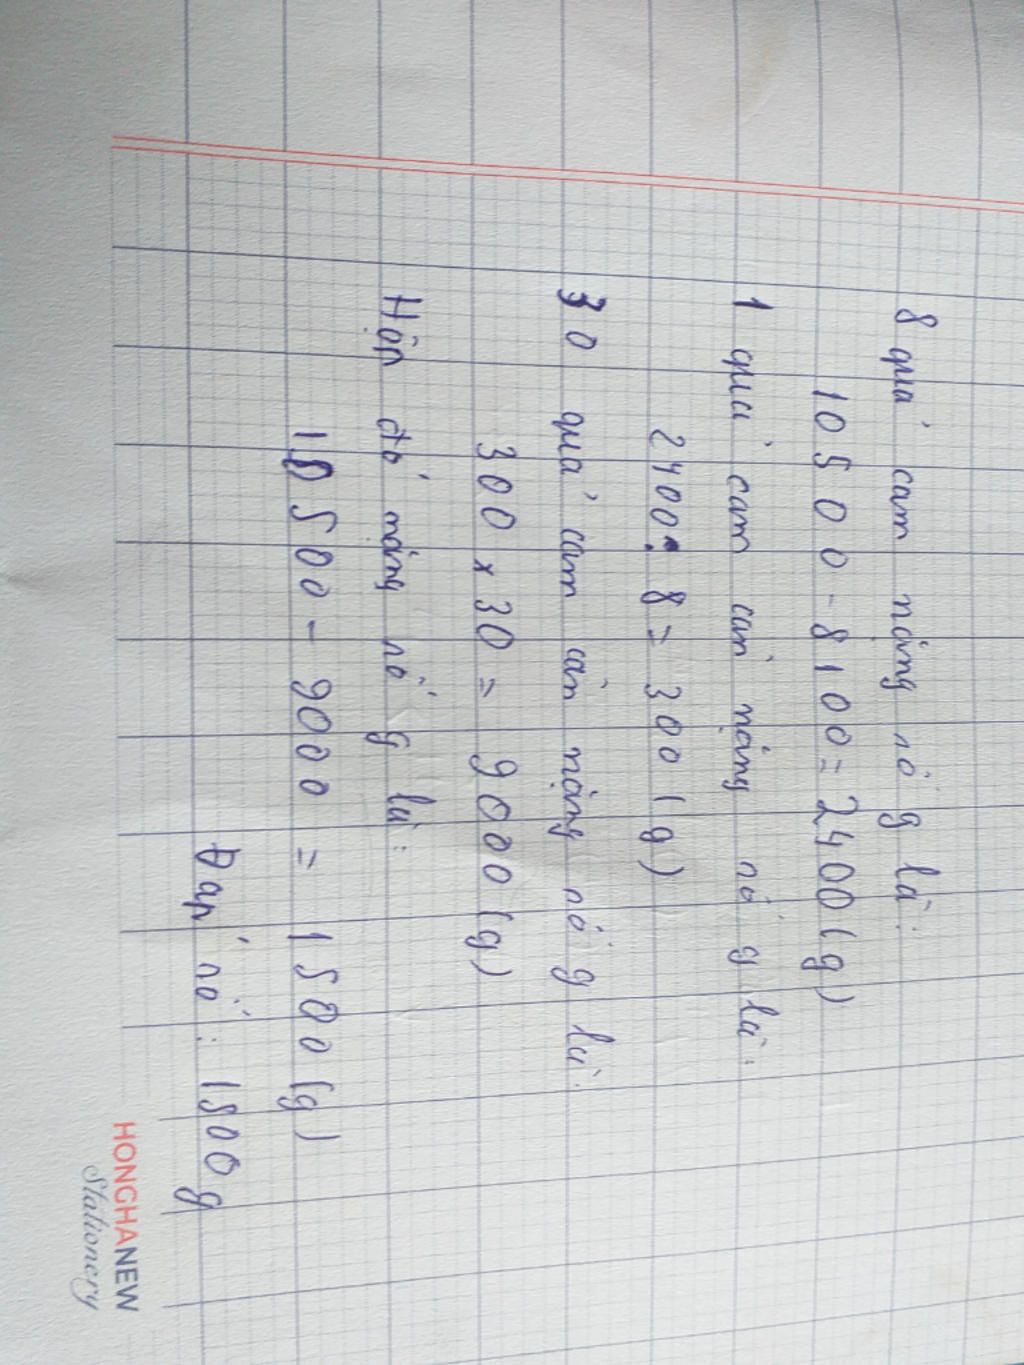 8 quả cam nặng số g là:
10500-8100=2400(g)
1 quả cam cân nặng số g là:
2400:8=300(g)
30 quả cam cân nặng số g là:
300x30=9000(g)
Hộp đó nặng số g là:
10500-9000=1500(g)
Đáp số: 1500g
HONGHANEW
Stationery